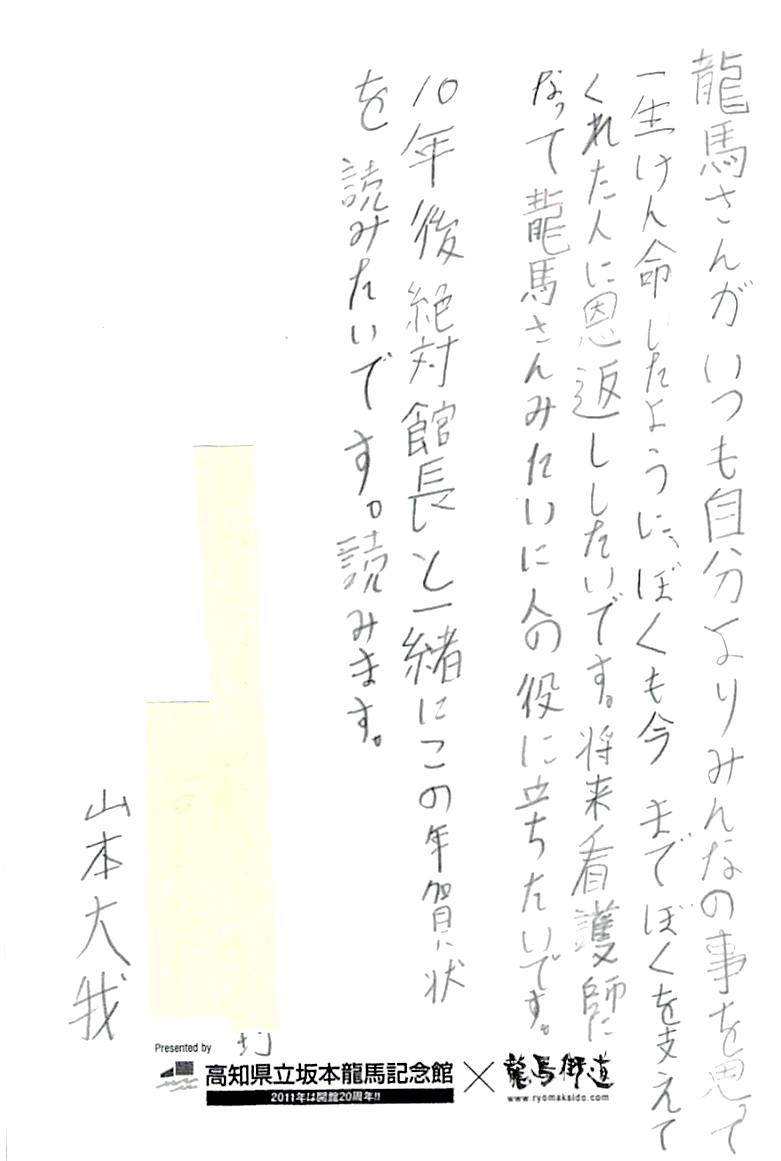 龍馬さんがいつも自分よりみんなの事を思って
一生けん命したように、ぼくも今までぼくを支えて
くれた人に恩返ししたいです。将来看護師に
なって龍馬さんみたいに人の役に立ちたいです。
10年後絶対館長と一緒にこの年賀状
を読みたいです。読みます。
山本大我
Presented by
高知県立坂本龍馬記念館
2011年は開館20周年!!
×
龍馬街道
www.ryomakaido.com